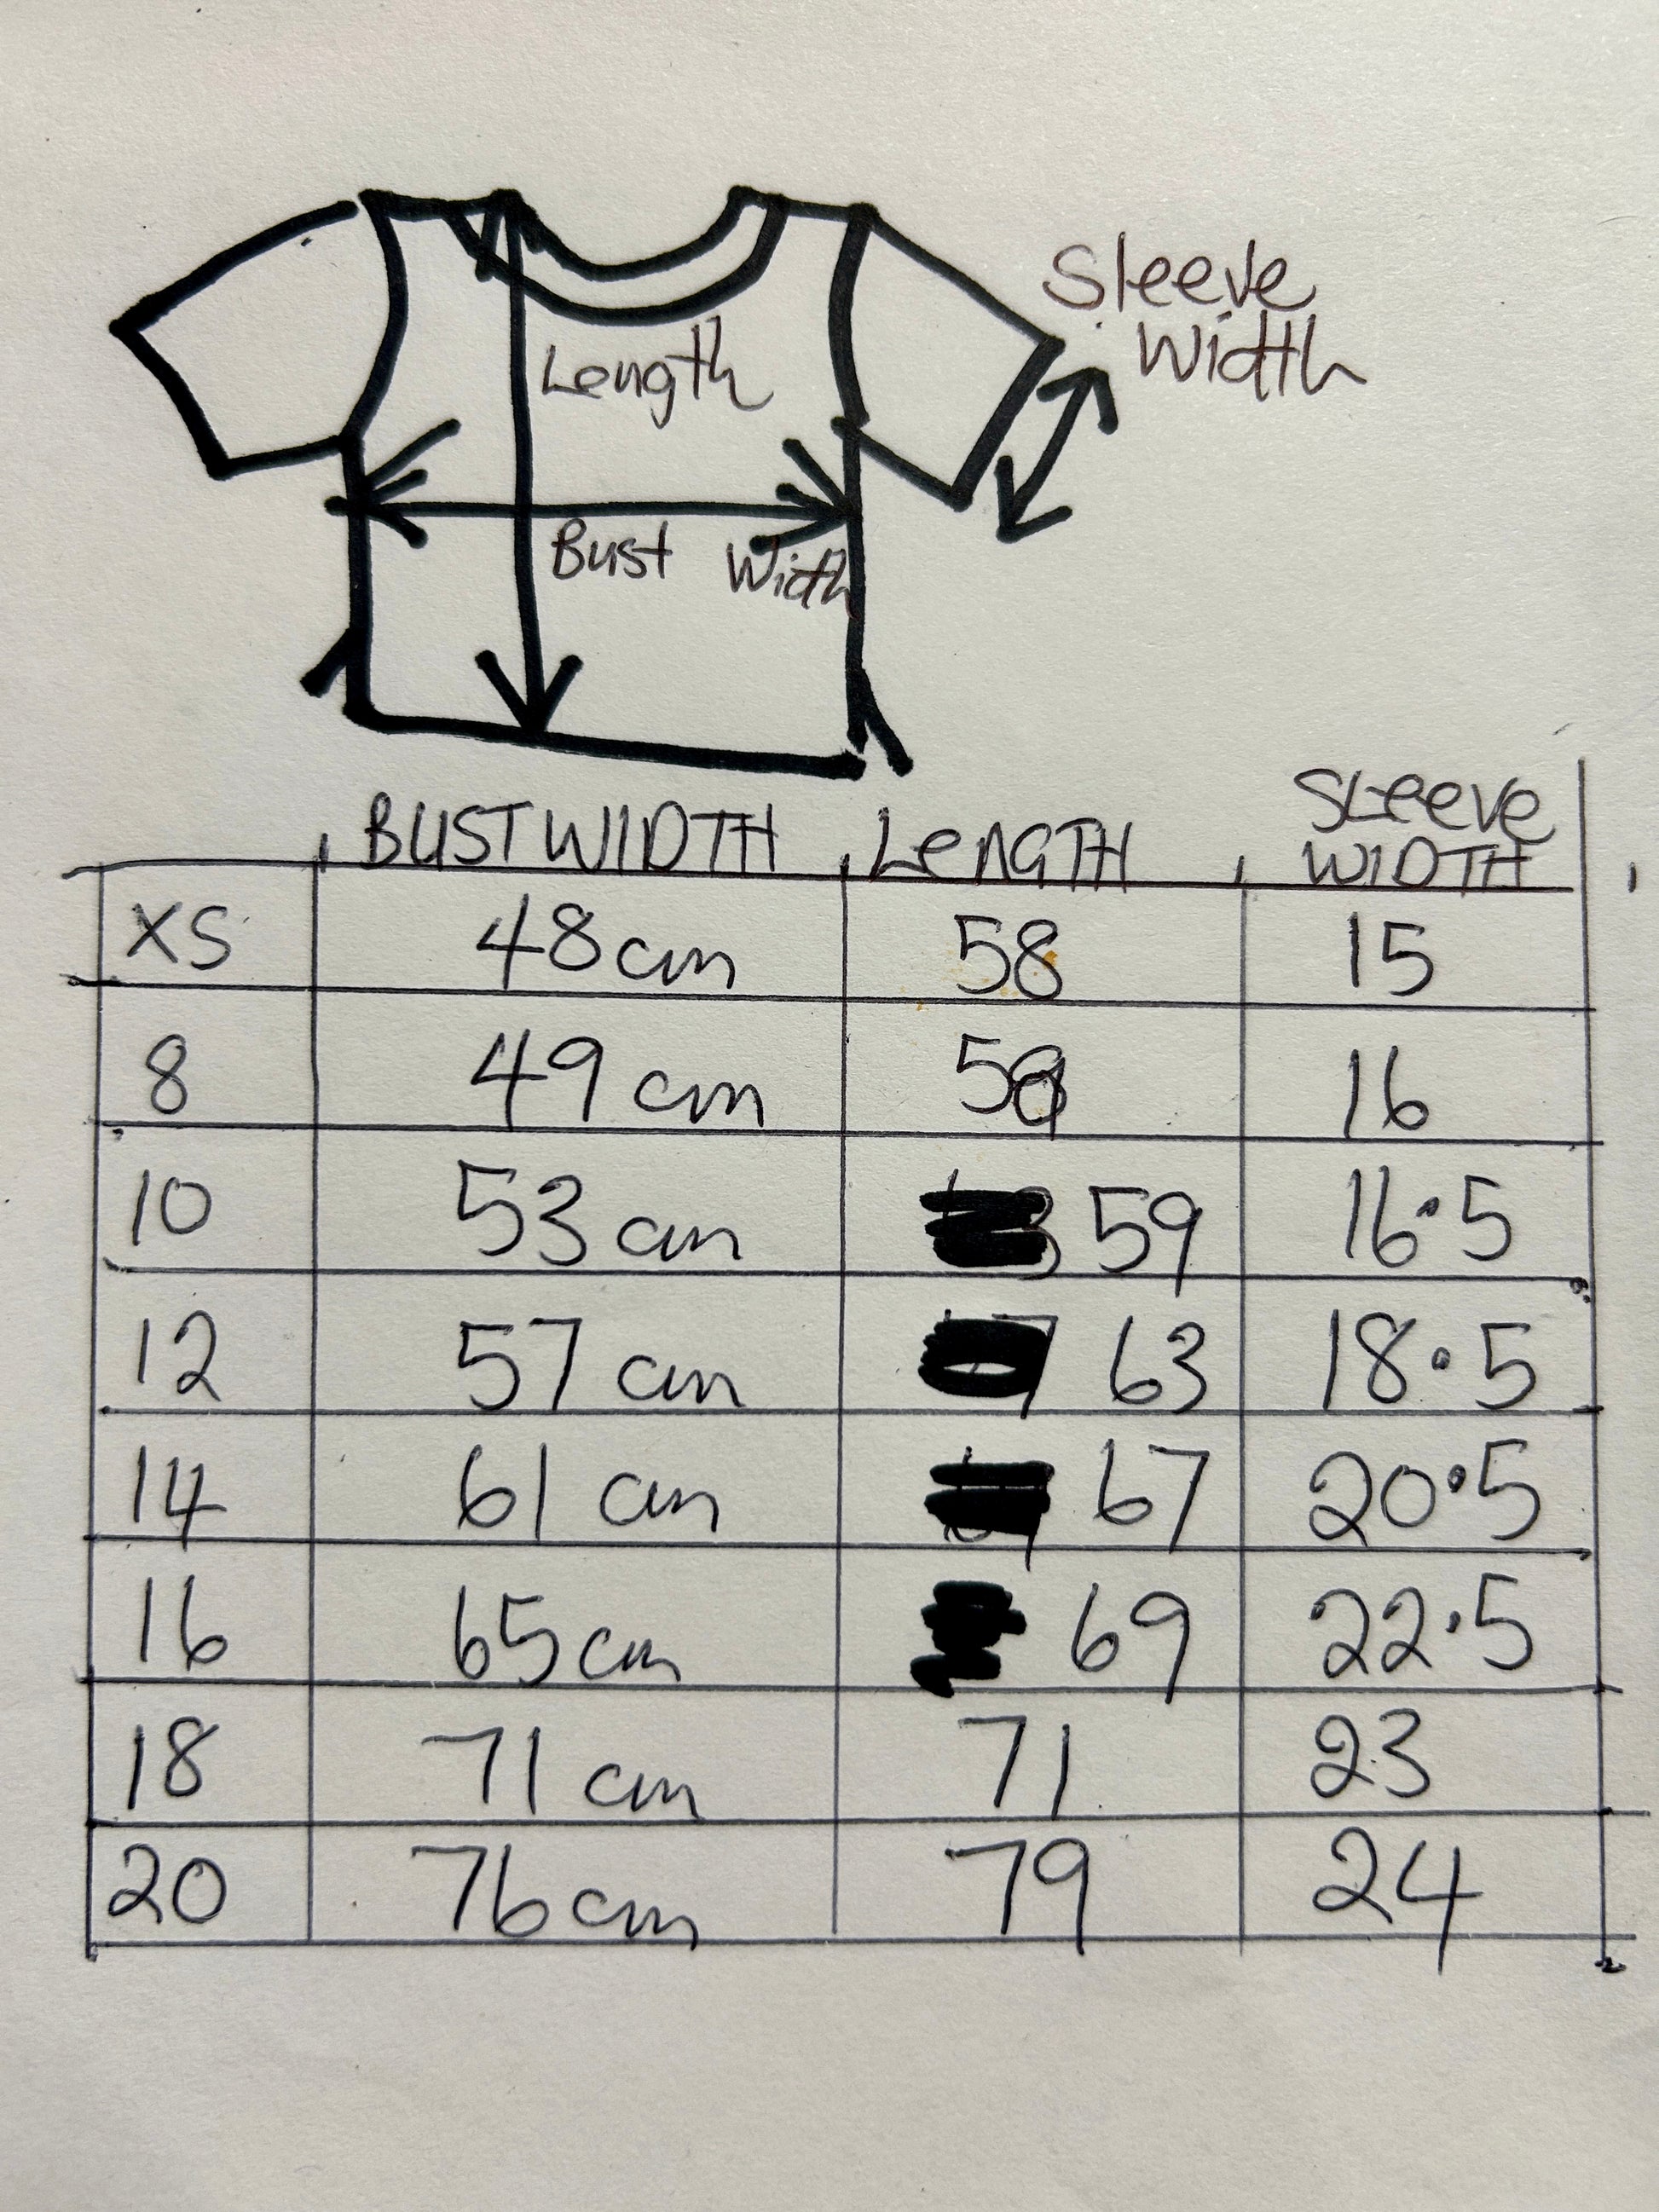 Sleeve
Width
Length
Bust Width
SLeeve
BUST WIDTH LeNGTH WIDTH
XS 48cm 58 15
8 49 cm 16
10 53 cm 59 16.5
12 57 cm 63 18.5
14 61 cm 67 20.5
16 65cm 69 22.5
18 71 cm 71 23
20 76cm 79 24